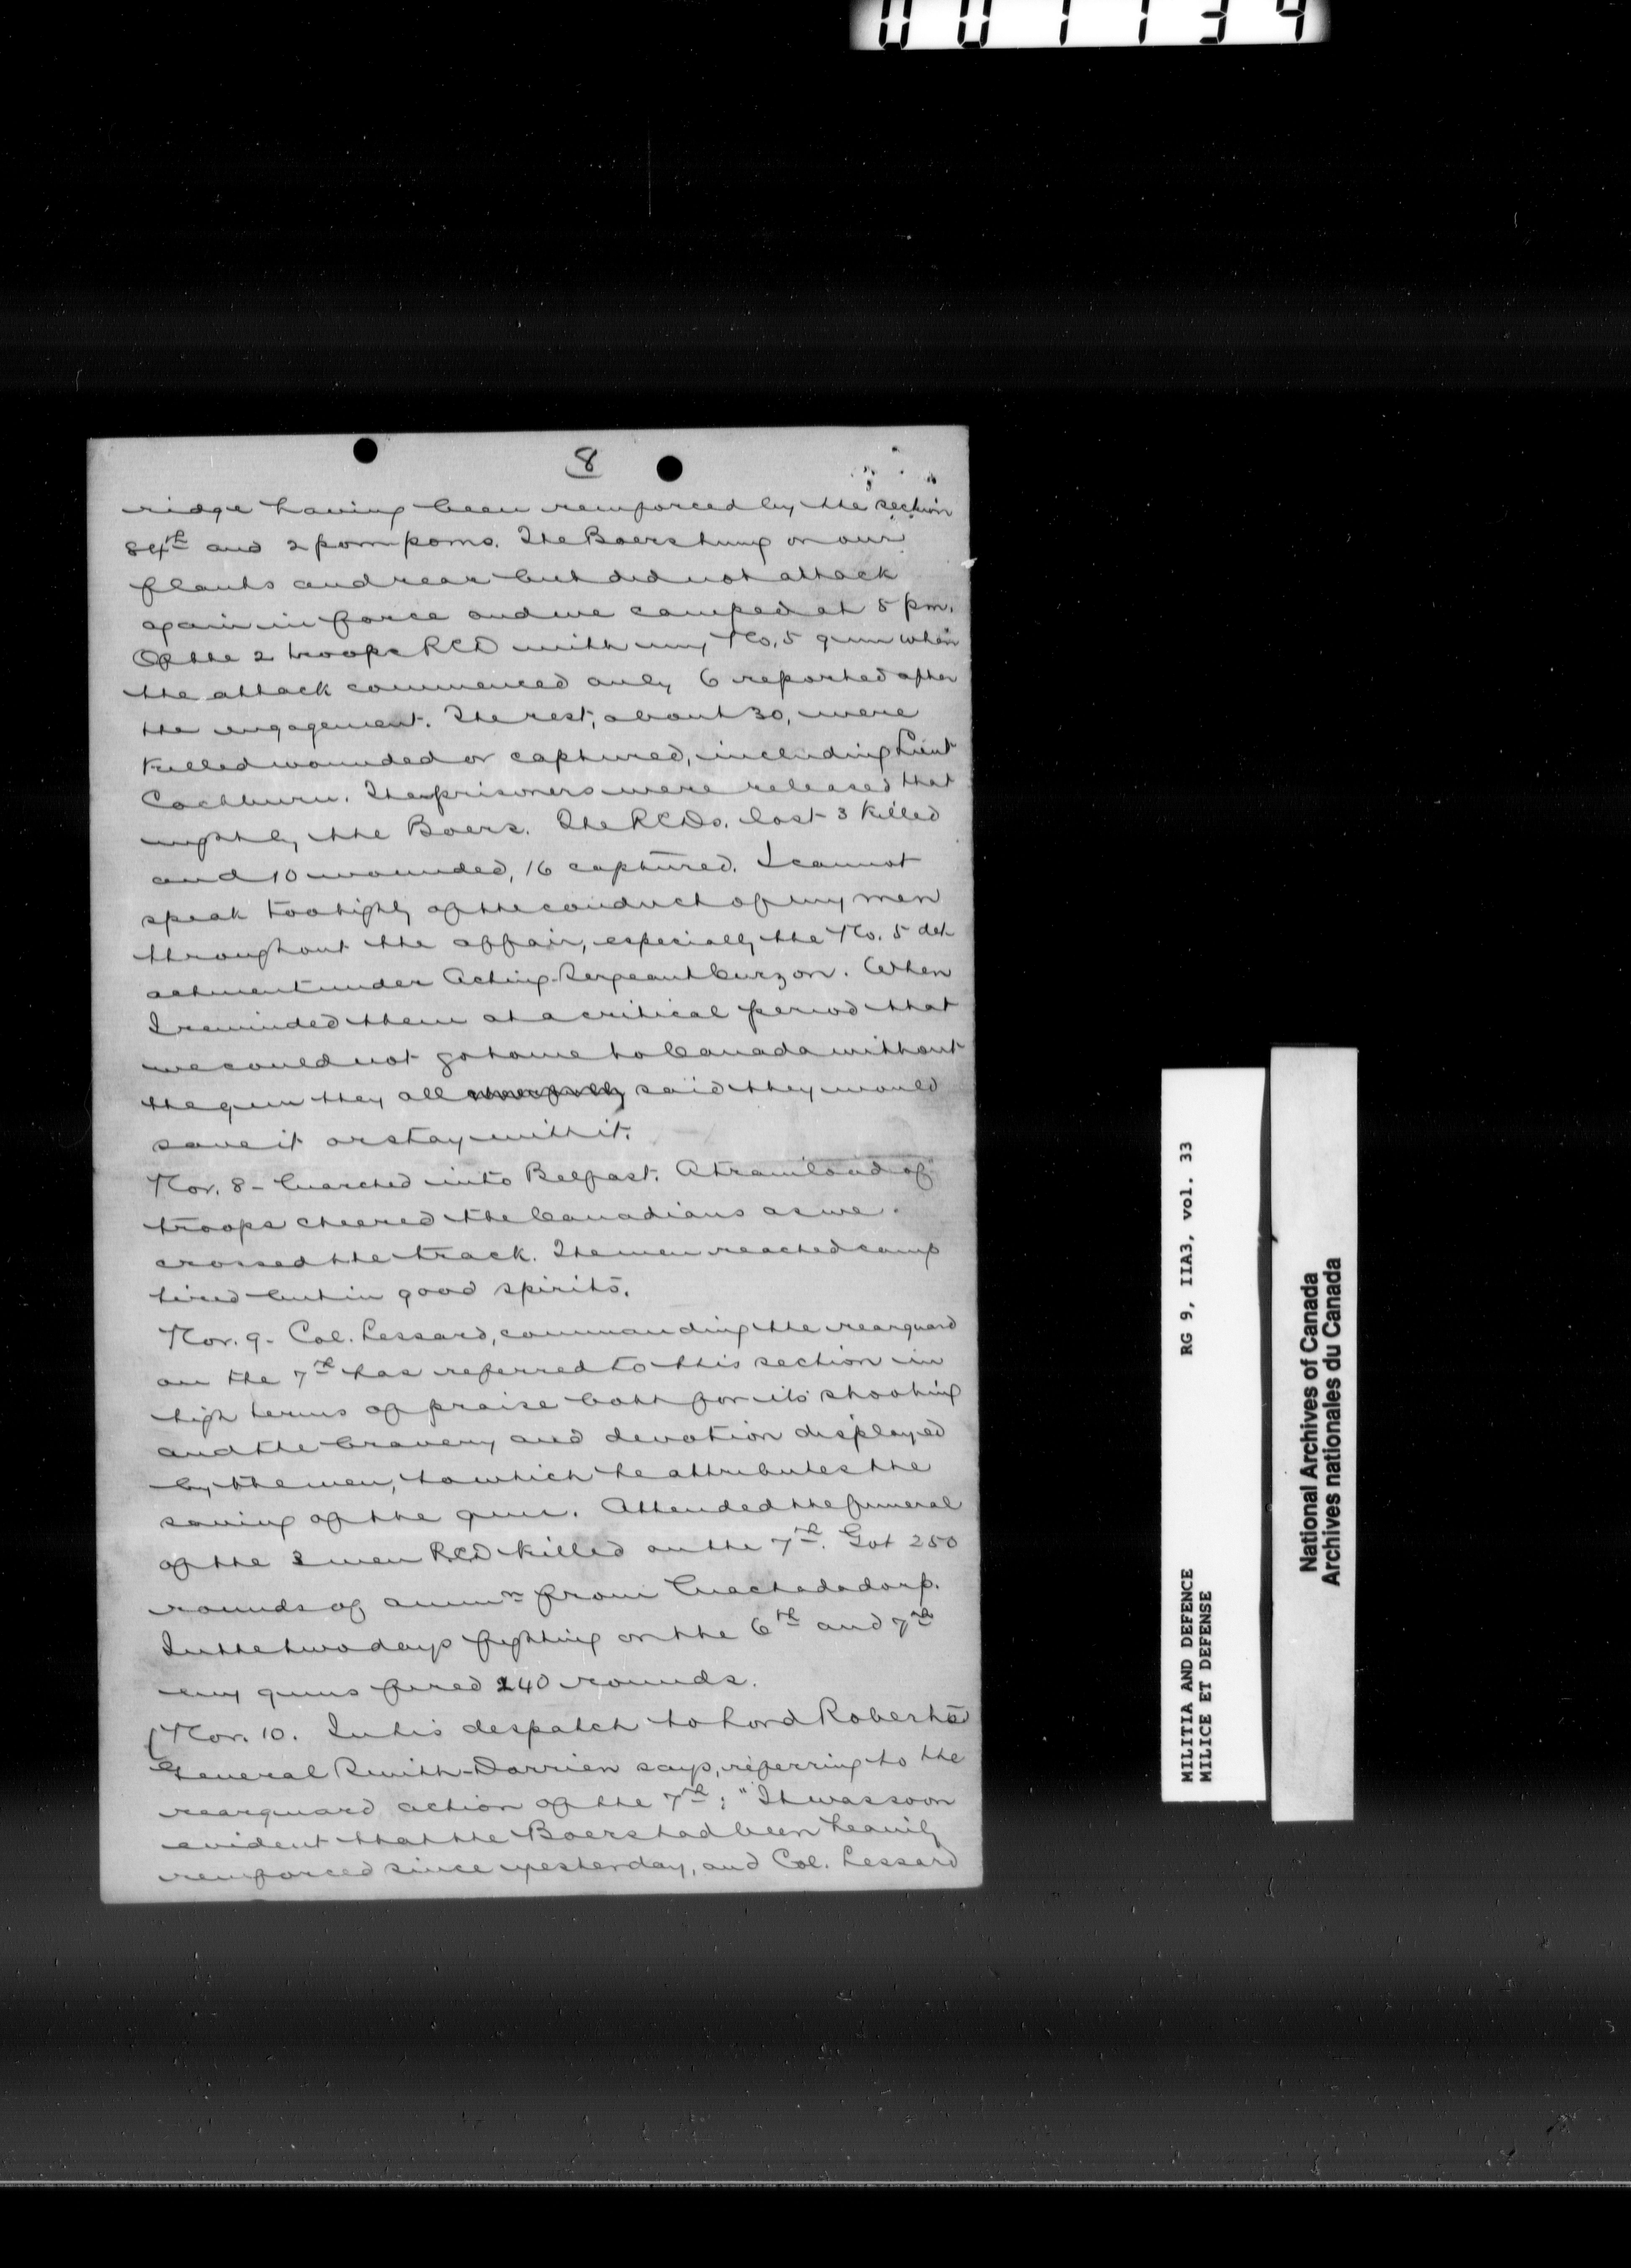 001134
8
ridge having been reinforced by the section
84th and 2 pom poms. The Boers hung on our
flanks and rear but did not attack
again in force and we camped at 5 pm.
Of the 2 troops RCD with my No. 5 gun when
the attack commenced only 6 reported after
the engagement. The rest, about 30, were
killed wounded or captured, including Lieut
Cockburn. The prisoners were released that
night by the Boers. The RCDs. lost 3 killed
and 10 wounded, 16 captured. I cannot
speak too highly of the conduct of my men
throughout the affair, especially the No. 5 det-
achment under Acting-Sergeant Curzon. When
I reminded them at a critical period that
we could not go home to Canada without
the gun they all said they would
save it or stay with it.
Nov. 8 - Marched into Belfast. A train load of
troops cheered the Canadians as we
crossed the track. The men reached camp
tired but in good spirits.
Nov. 9 - Col. Lessard, commanding the rearguard
on the 7th has referred to this section in
high terms of praise both for its shooting
and the bravery and devotion displayed
by the men, to which he attributes the
saving of the gun. Attended the funeral
of the 3 men RCD killed on the 7th. Got 250
rounds of ammn from Machadodorp.
In the two days fighting on the 6th and 7th
my guns fired 240 rounds.
(Nov. 10. In his despatch to Lord Roberts
General Smith-Dorrien says, referring to the
rearguard action of the 7th: "It was soon
evident that the Boers had been heavily
reinforced since yesterday, and Col. Lessard
MILITIA AND DEFENCE RG 9, IIA3, vol. 33
MILICE ET DEFENSE
National Archives of Canada
Archives nationales du Canada